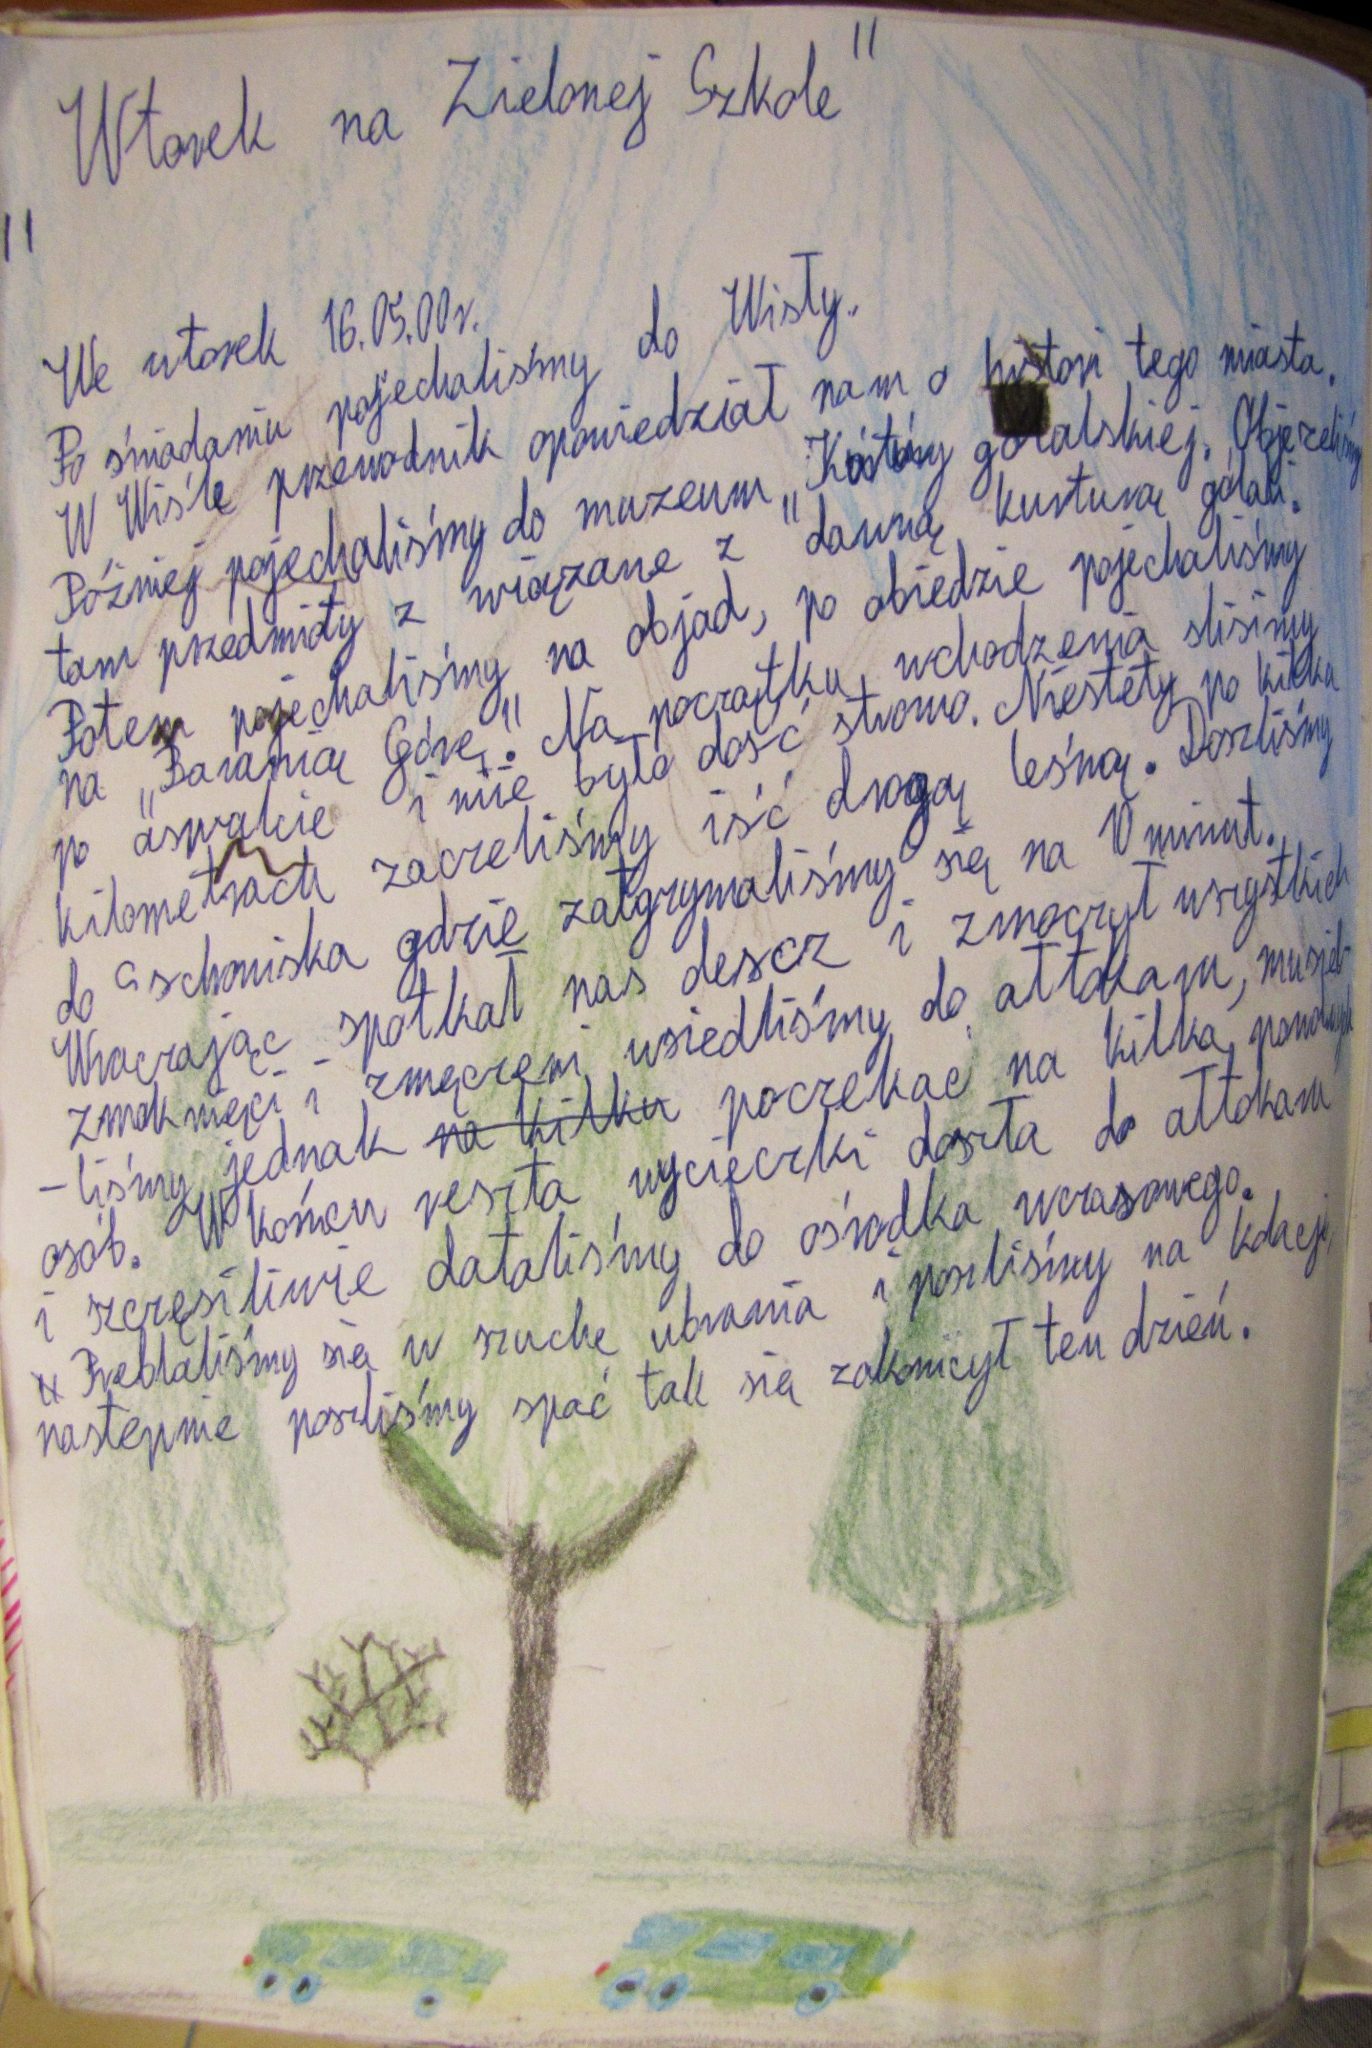 "Wtorek na Zielonej Szkole"
We wtorek 16.05.00r.
Po śniadaniu pojechaliśmy do Wisły.
W Wiśle przewodnik opowiedział nam o histori tego miasta.
Później pojechaliśmy do muzeum „ góralskiej. Objrzeliśmy
tam przedmioty z wiązane z "dawną kurturą górali.
Potem pojechaliśmy na objad, po obiedzie pojechaliśmy
na „Baranią Górę". Na początku wchodzenia sliśimy
po aswalcie i nie było dość stromo. Niestety po kilka
kilometrach zaczeliśmy iść drogą leśną. Doszliśmy
do schoniska gdzie zatgrymaliśmy się na 10 minut.
Wracając spotkał nas descz i zmoczył wszystkich
zmoknięci i zmęczeni usiedliśmy do ałtokaru, musieb-
-liśmy jednak na kilku poczekać na kilka
osób. W końcu reszta wycieczki doszła do ałtokaru
i szczęsiliwie dataliśmy do ośrodka wczasowego.
Przeblaliśmy się w szuche ubrania i poszliśmy na kolacji,
następnie poszliśmy spać tak się zakończył ten dzień.